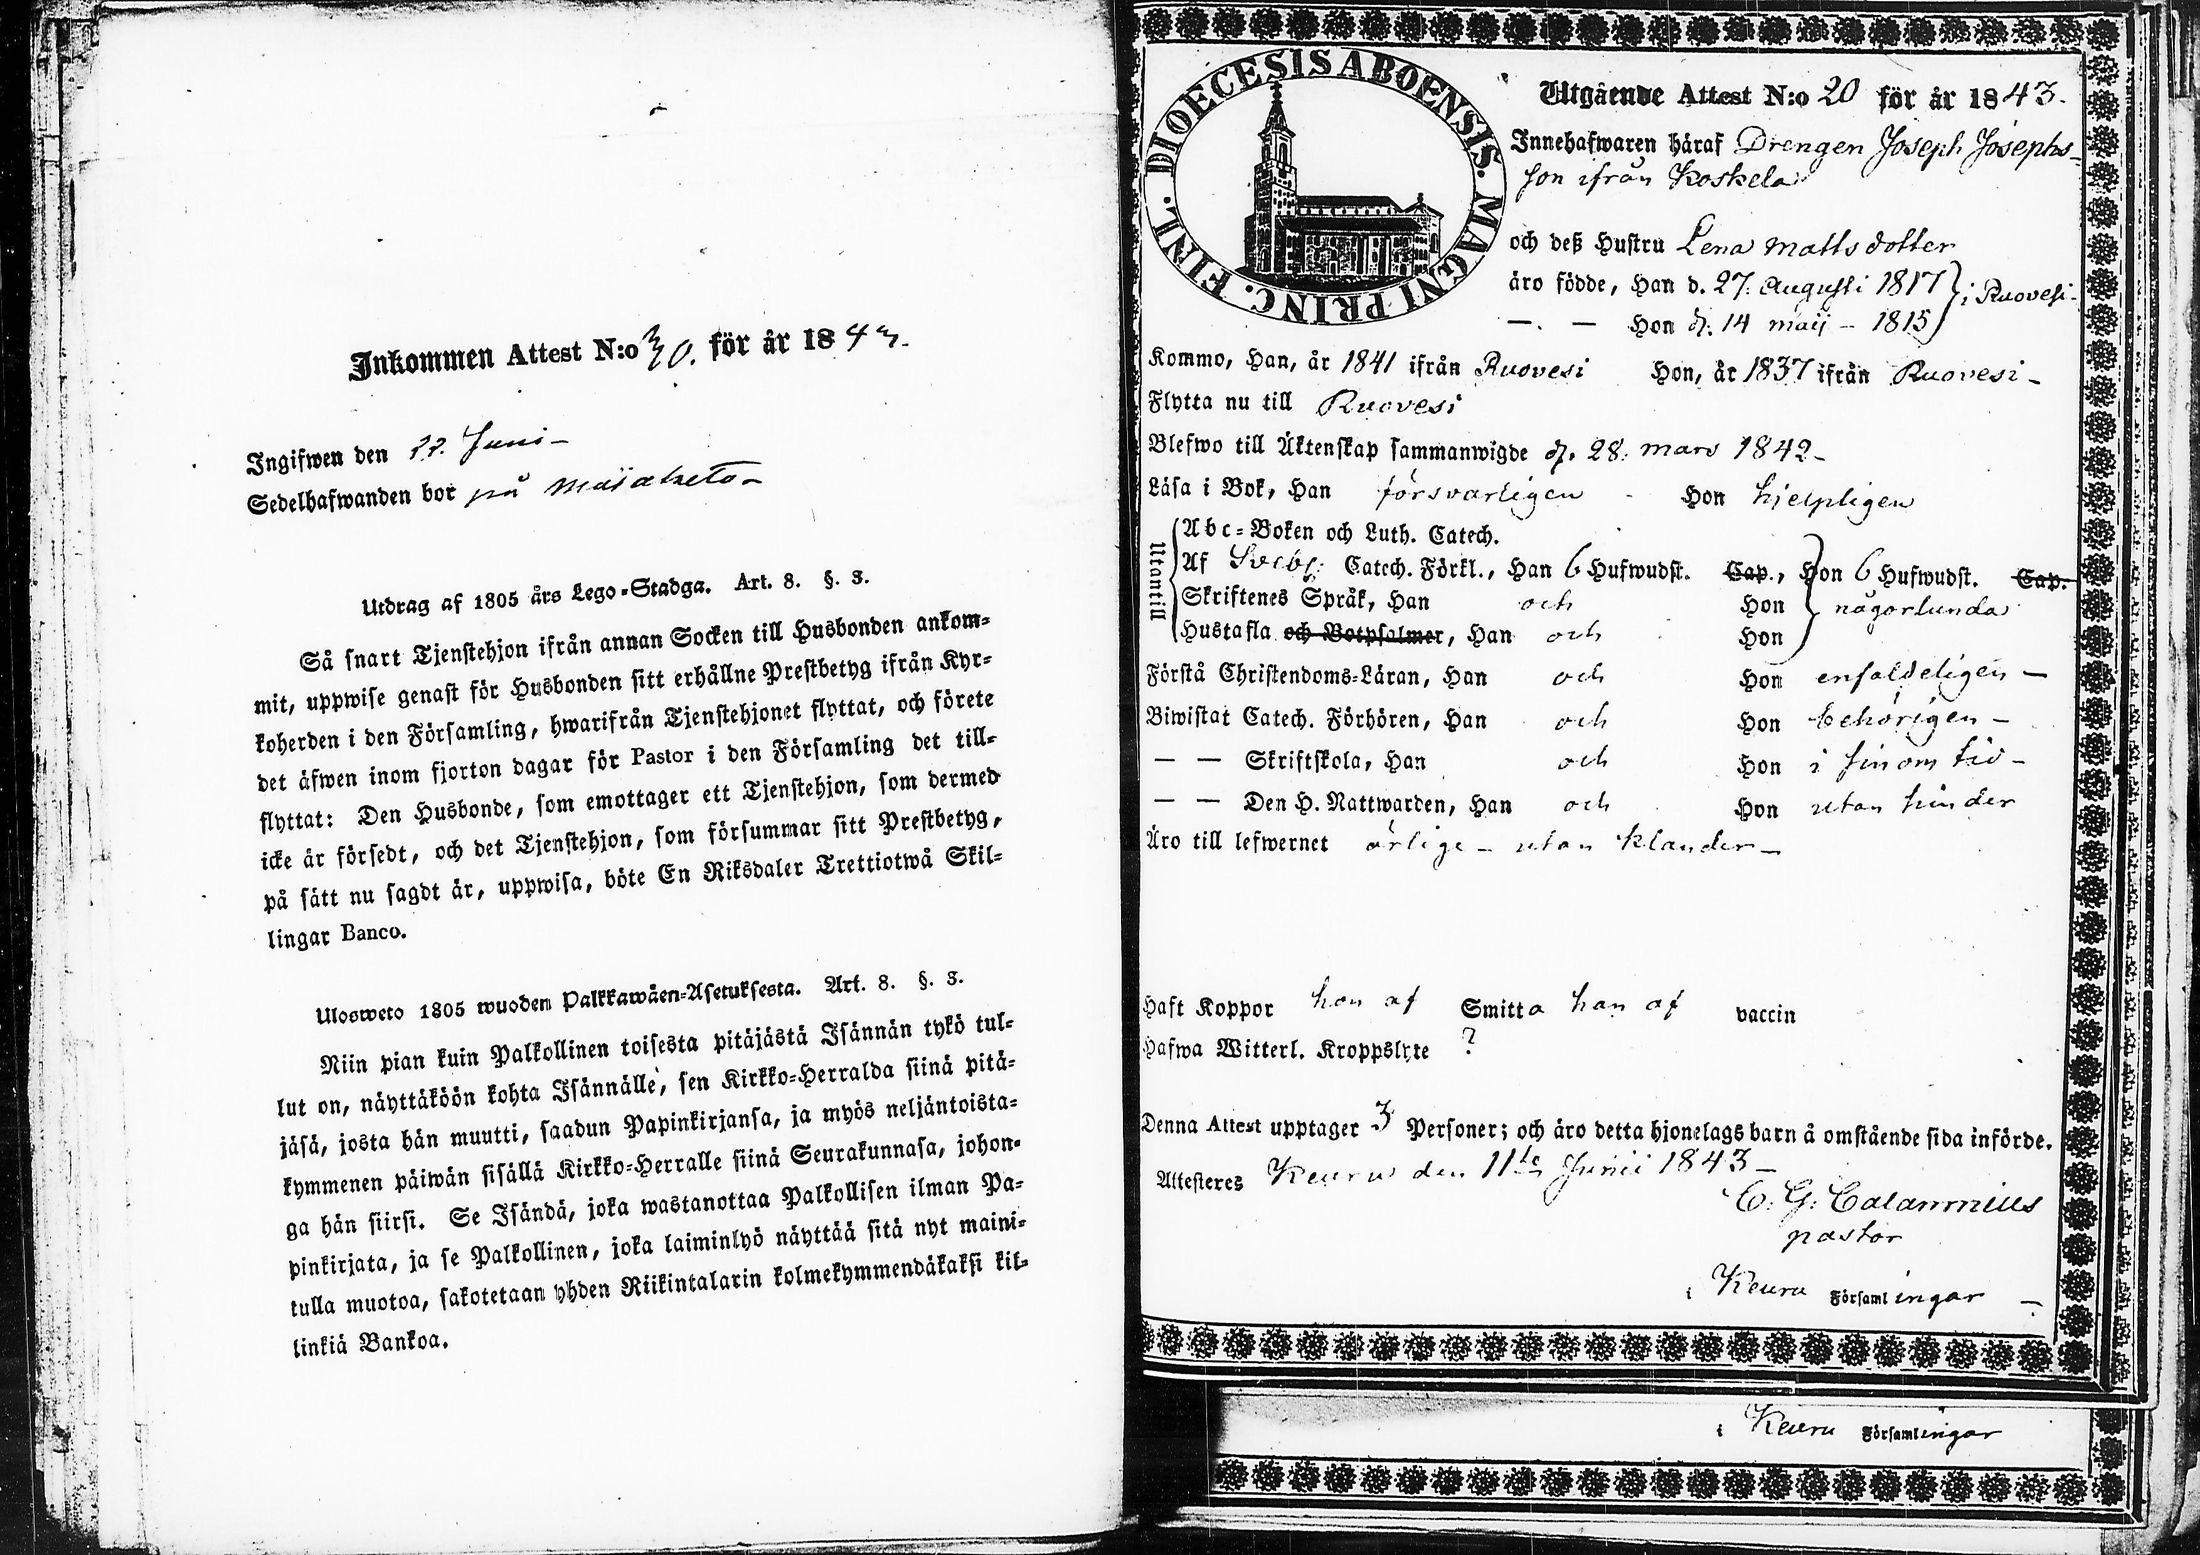 Inkommen Attest N:o 30. för år 1843.
Ingifwen den 22. Juni –
Sedelhafwanden bor på
Utdrag af 1805 års Lego-Stadga. Art. 8. §. 3.
Så snart Tjenstehjon ifrån annan Socken till Husbonden ankom-
mit, uppwise genast för Husbonden sitt erhållne Prestbetyg ifrån Kyr-
koherden i den Församling, hwarifrån Tjenstehjonet flyttat, och förete
det äfwen inom fjorton dagar för Pastor i den Församling det till-
flyttat: Den Husbonde, som emottager ett Tjenstehjon, som dermed
icke är försedt, och det Tjenstehjon, som försummar sitt Prestbetyg,
på sätt nu sagdt är, uppwisa, böte En Riksdaler Trettiotwå Skil-
lingar Banco.
Ulosweto 1805 wuoden Palkkawäen-Asetuksesta. Art. 8. §. 3.
Niin pian kuin Palkollinen toisesta pitäjästä Isännän tykö tul-
lut on, näyttäköön kohta Isännälle, sen Kirkko-Herralda siinä pitä-
jäsä, josta hän muutti, saadun Papinkirjansa, ja myös neljäntoista-
kymmenen päiwän sisällä Kirkko-Herralle siinä Seurakunnasa, johon-
ga hän siirsi. Se Isändä, joka wastanottaa Palkollisen ilman Pa-
pinkirjata, ja se Palkollinen, joka laiminlyö näyttää sitä nyt maini-
tulla muotoa, sakotetaan yhden Riikintalarin kolmekymmendäkaksi kil-
linkiä Bankoa.
DIOECESIS ABOENSIS. MAGNI PRINC. FINL.
Utgående Attest N:o 20 för år 1843.
Innehafwaren häraf Drengen Joseph Josephs-
son ifrån Koskela
och deß Hustru Lena Mattsdotter
äro födde, Han d. 27. Augusti 1817 } i Ruovesi-
—. — Hon d. 14 maij – 1815
Kommo, Han, år 1841 ifrån Ruovesi Hon, år 1837 ifrån Ruovesi –
Flytta nu till Ruovesi
Blefwo till Äktenskap sammanwigde d. 28. mars 1842 –
Läsa i Bok, Han försvarligen - Hon hjelpligen
Utantill
Abc-Boken och Luth. Catech.
Af Svebg: Catech. Förkl., Han 6 Hufwudst. Cap., Hon 6 Hufwudst. Cap.
Skriftenes Språk, Han och Hon någorlunda
Hustafla och Botpsalmer, Han och Hon
Förstå Christendoms-Läran, Han och Hon enfaldeligen –
Biwistat Catech. Förhören, Han och Hon behörigen –
— — Skriftskola, Han och Hon i sinom tid –
— — Den H. Nattwarden, Han och Hon utan hinder
Äro till lefwernet ärlige – utan klander –
Haft Koppor han af Smitta han af vaccin
Hafwa Witterl. Kroppslyte ?
Denna Attest upptager 3 Personer; och äro detta hjonelags barn å omstående sida införde.
Attesteres Keuru den 11te Junii 1843 –
C. G. Calamnius
pastor
i Keuru Församlingar –
i Keuru Församlingar